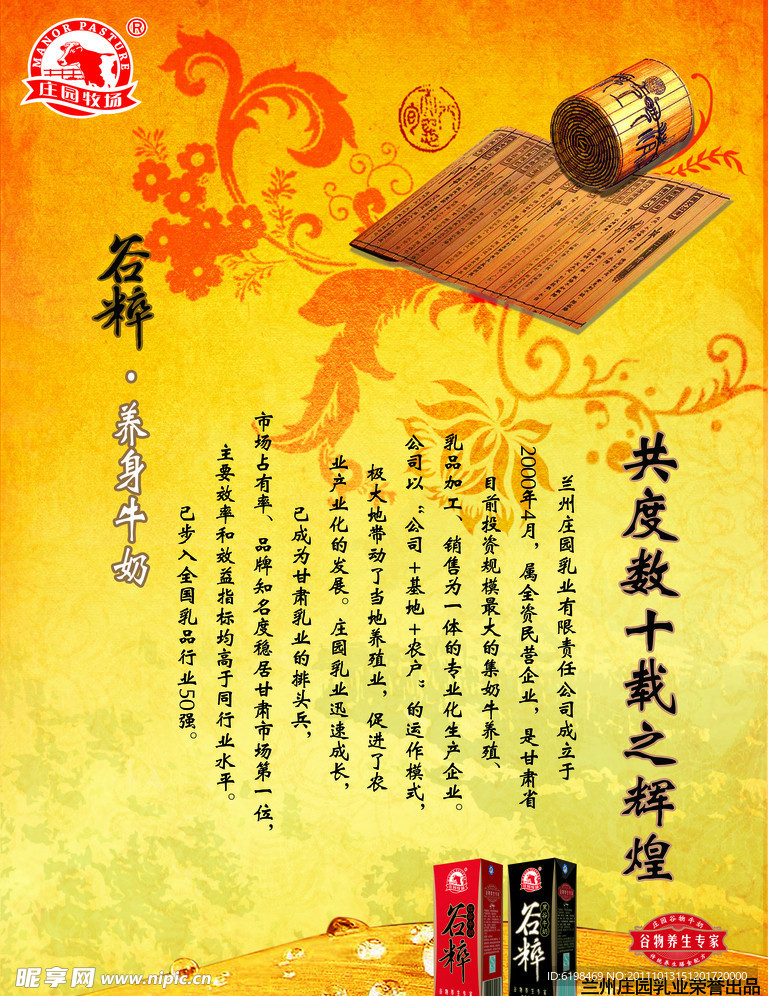 MANOR PASTURE
®
庄园牧场
谷粹·养身牛奶
共度数十载之辉煌
兰州庄园乳业有限责任公司成立于
2000年4月，属全资民营企业，是甘肃省
目前投资规模最大的集奶牛养殖、
乳品加工、销售为一体的专业化生产企业。
公司以“公司+基地+农户”的运作模式，
极大地带动了当地养殖业，促进了农
业产业化的发展。庄园乳业迅速成长，
已成为甘肃乳业的排头兵，
市场占有率、品牌知名度稳居甘肃市场第一位，
主要效率和效益指标均高于同行业水平。
已步入全国乳品行业50强。
谷粹
谷粹
庄园谷物牛奶
谷物养生专家
传统养生膳食配方
昵享网 www.nipic.cn
ID:6198469 NO:20111013151201720000
兰州庄园乳业荣誉出品